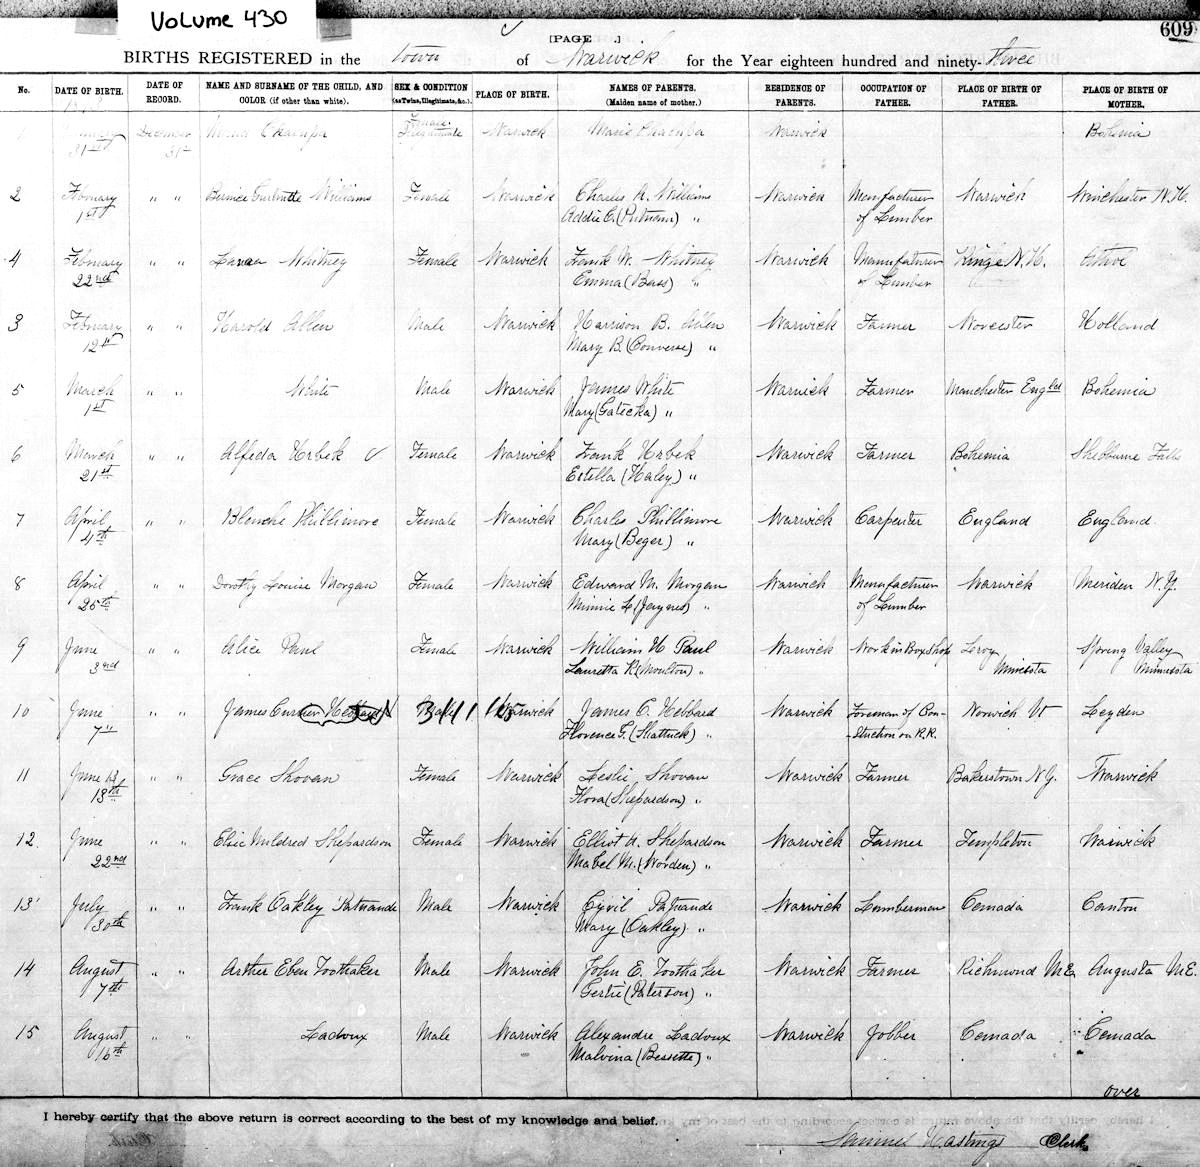 Volume 430
609
[PAGE .]
BIRTHS REGISTERED in the town of Warwick for the Year eighteen hundred and ninety-three
No. DATE OF BIRTH. DATE OF RECORD. NAME AND SURNAME OF THE CHILD, AND COLOR (if other than white). SEX & CONDITION (as Twins, Illegitimate, &c.). PLACE OF BIRTH. NAMES OF PARENTS. (Maiden name of mother.) RESIDENCE OF PARENTS. OCCUPATION OF FATHER. PLACE OF BIRTH OF FATHER. PLACE OF BIRTH OF MOTHER.
1 January December Female Illegitimate Warwick Marie Warwick Bohemia
31st 31st
2 February " " Bernice Gertrude Williams Female Warwick Charles A. Williams Warwick Manufacturer Warwick Winchester N.H.
1st Addie E. (Putnam) " of Lumber
4 February " " Whitney Female Warwick Frank W. Whitney Warwick Manufacturer N.H. Athol
22nd Emma ( ) " of Lumber
3 February " " Harold Allen Male Warwick Harrison B. Allen Warwick Farmer Worcester Holland
12th Mary B. (Converse) "
5 March " " White Male Warwick James White Warwick Farmer Manchester Engld Bohemia
1st Mary (Gatecka) "
6 March " " Alfeda Urbek Female Warwick Frank Urbek Warwick Farmer Bohemia Shelburne Falls
21st Estella (Haley) "
7 April " " Blenche Phillimore Female Warwick Charles Phillimore Warwick Carpenter England England.
4th Mary (Beger) "
8 April " " Dorothy Louise Morgan Female Warwick Edward M. Morgan Warwick Manufacturer Warwick Meriden N.Y.
25th Minnie L. (Jaynes) " of Lumber
9 June " " Alice Paul Female Warwick William H Paul Warwick Work in Box Shop Leroy Spring Valley
3nd Lauretta R. (Moulton) " Minesota Minnesota
10 June " " James Currier Hebbard Male 3/11/ Warwick James C. Hebbard Warwick Foreman of Con- Norwich Vt Leyden
7" Florence G. (Shattuck) " -struction on R.R.
11 June 18 " " Grace Shovan Female Warwick Leslie Shovan Warwick Farmer Bakerstown N.Y. Warwick
18th Flora (Shepardson) "
12. June " " Elsie Mildred Shepardson Female Warwick Elliot A. Shepardson Warwick Farmer Templeton Warwick
22nd Mabel M. (Worden) "
13 July " " Frank Oakley Patnaude Male Warwick Cyril Patnaude Warwick Lumberman Cemada Canton
30th Mary (Oakley) "
14 August " " Arther Eben Toothaker Male Warwick John E. Toothaker Warwick Farmer Richmond ME. Augusta ME.
7th Gertie (Paterson) "
15 August " " Ladoux Male Warwick Alexandre Ladoux Warwick Jobber Cemada Cemada
16th Malvina (Bessette) "
over
I hereby certify that the above return is correct according to the best of my knowledge and belief.
Samuel Hastings Clerk.